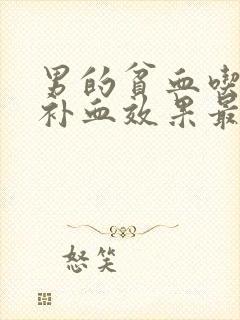 男的贫血喫
补血效果最
怒笑